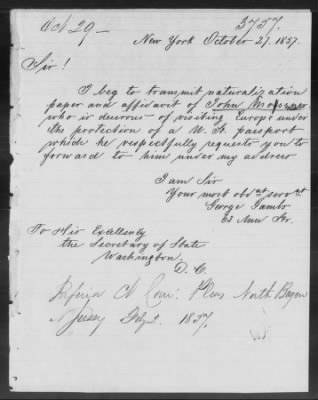 Oct 29
3757.
New York October 27. 1857.
Sir!
I beg to transmit naturalization
paper and affidavit of John
who is desirous of visiting Europe under
the protection of a U. S. passport
which he respectfully requests you to
forward to him under my address
I am Sir
Your most obdt servt
George
Ann Str.
To His Excellency
the Secretary of State
Washington
D. C.
C Pleas North Bergen
N Jersey 1857.